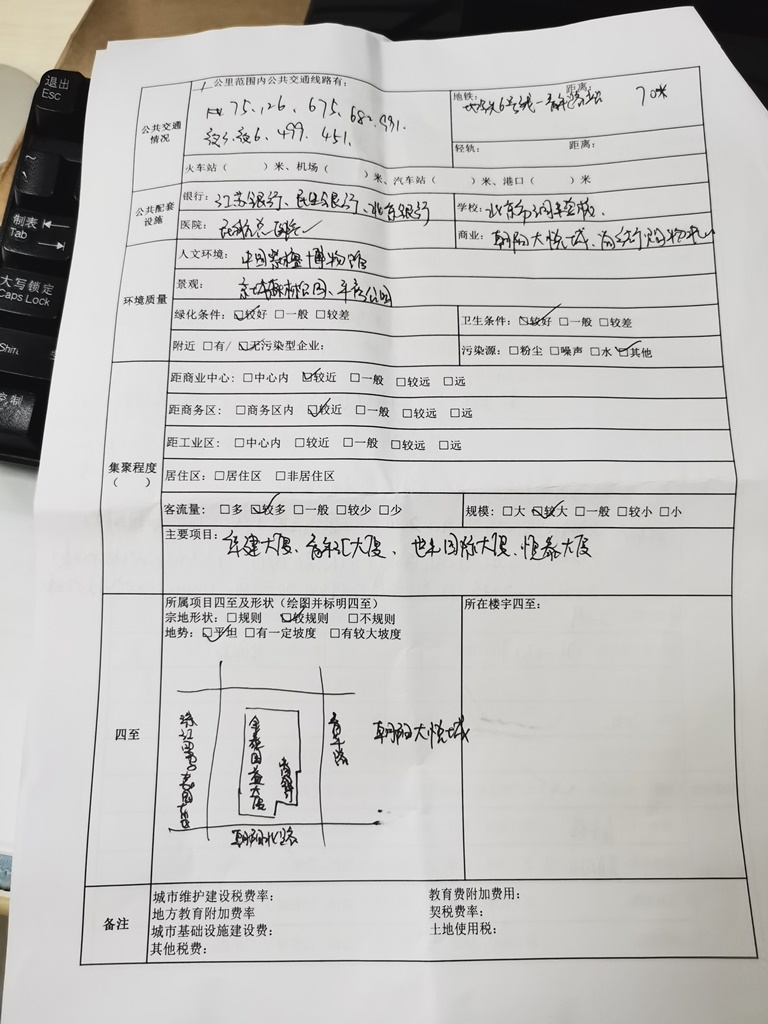 退出
Esc
制表
Tab
大写锁定
Caps Lock
Shift
1公里范围内公共交通线路有:
75、126、675、682、991.
499、451、
公共交通情况
地铁: 距离:
地铁6号线—青年路站 70米
轻轨: 距离:
火车站( )米、机场( )米、汽车站( )米、港口( )米
公共配套设施
银行:江苏银行、民生银行、北京银行
学校:
医院:民航总医院
商业:朝阳大悦城、
环境质量
人文环境:中国紫檀博物馆
景观:京城梨园公园、
绿化条件:☑较好 □一般 □较差
卫生条件:☑较好 □一般 □较差
附近 □有/ ☑无污染型企业:
污染源:□粉尘 □噪声 □水 ☑其他
集聚程度( )
距商业中心:□中心内 ☑较近 □一般 □较远 □远
距商务区:□商务区内 ☑较近 □一般 □较远 □远
距工业区:□中心内 □较近 □一般 □较远 □远
居住区:□居住区 □非居住区
客流量:□多 ☑较多 □一般 □较少 □少
规模:□大 ☑较大 □一般 □较小 □小
主要项目:华建大厦、青年汇大厦、国际大厦、恒泰大厦
四至
所属项目四至及形状(绘图并标明四至)
宗地形状:□规则 ☑较规则 □不规则
地势:☑平坦 □有一定坡度 □有较大坡度
所在楼宇四至:
金泰国益大厦
青年路
朝阳大悦城
朝阳北路
备注
城市维护建设税费率:
教育费附加费用:
地方教育附加费率
契税费率:
城市基础设施建设费:
土地使用税:
其他税费: